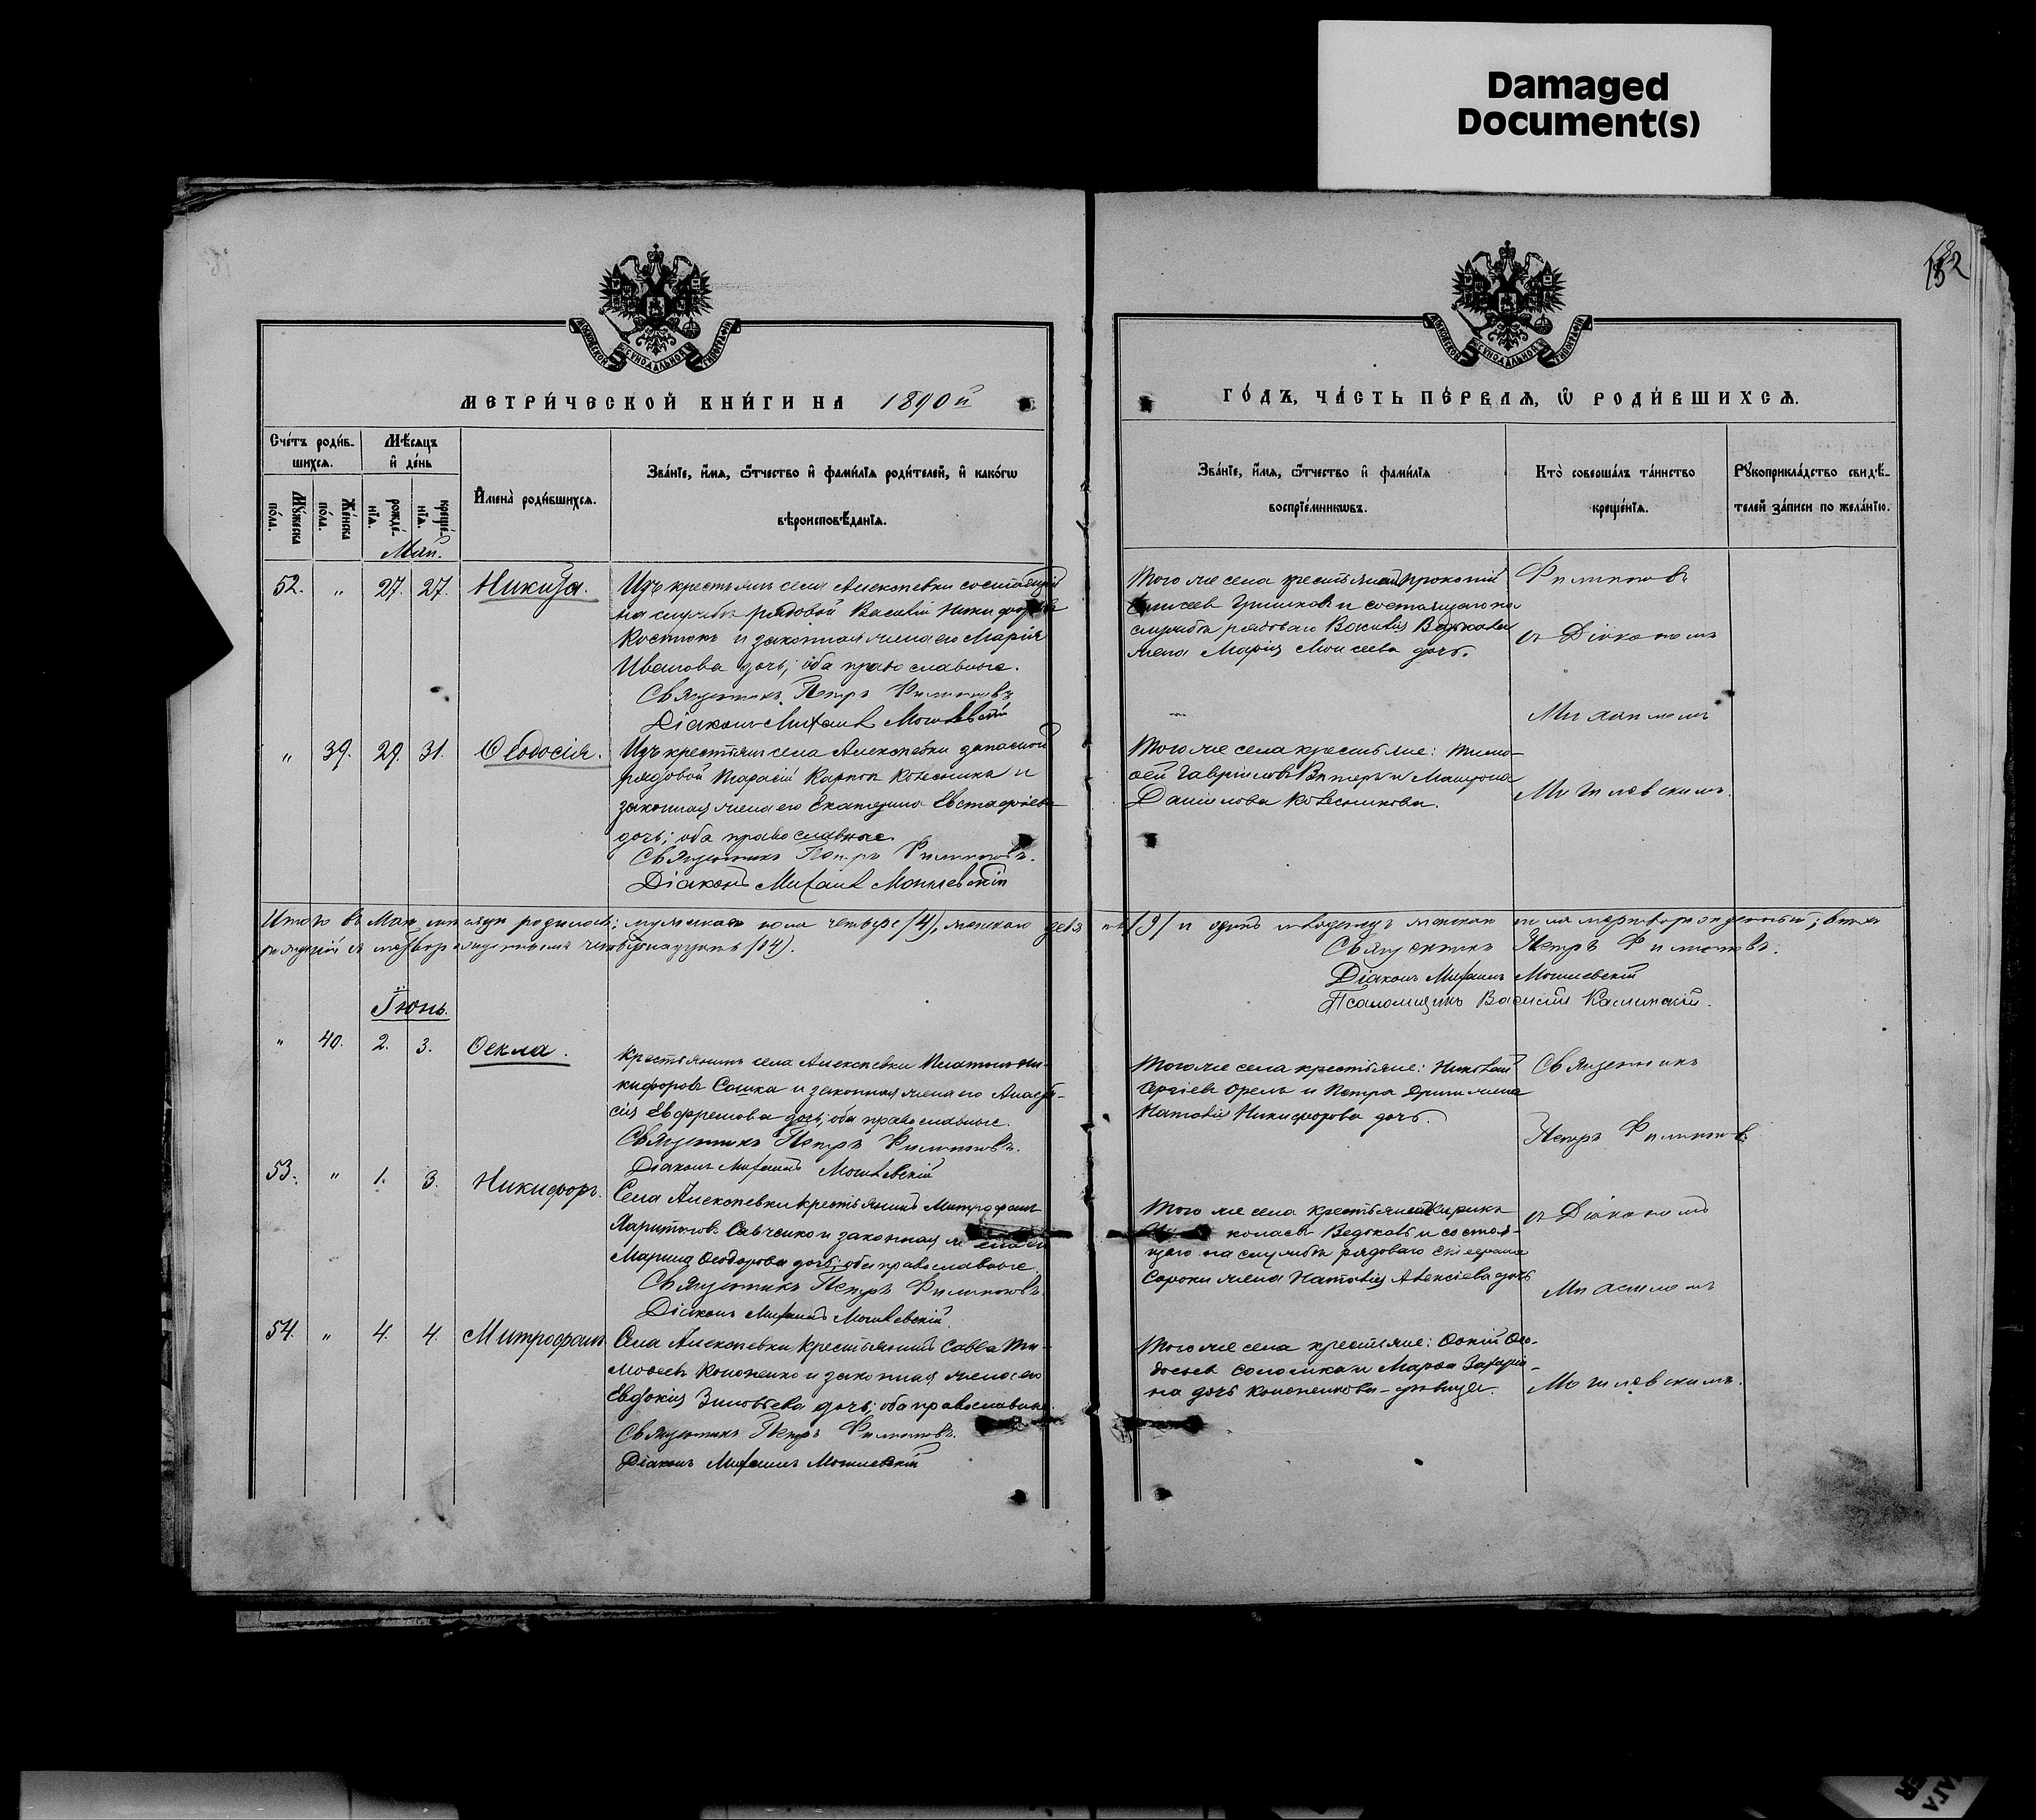 Damaged
Document(s)
152
МОСКОВСКОЙ СѴНОДАЛЬНОЙ ТИПОГРАФІИ
МОСКОВСКОЙ СѴНОДАЛЬНОЙ ТИПОГРАФІИ
МЕТРИ́ЧЕСКОЙ КНИ́ГИ НА 1890й
ГО́ДЪ, ЧА́СТЬ ПЕ́РВАѦ, Ѡ҆ РОДИ́ВШИХСѦ.
Сче́тъ роди́в-
шихсѧ.
Мꙋ́жеска по́ла.
Же́нска по́ла.
Мѣ́сѧцъ
и҆ де́нь
рожде́-нїѧ.
креще́-нїѧ.
И҆мена̀ роди́вшихсѧ.
Зва́нїе, и҆́мѧ, ѻ҆́тчество и҆ фами́лїѧ роди́телей, и҆ како́гѡ
вѣроисповѣ́данїѧ.
Зва́нїе, и҆́мѧ, ѻ҆́тчество и҆ фами́лїѧ
воспрїе́мникѡвъ.
Кто̀ соверша́лъ та́инство
креще́нїѧ.
Рꙋкоприкла́дство свидѣ́-
телей за́писи по жела́нїю.
Май.
52. " 27. 27. Никита.
Изъ крестьянъ села Алексѣевки состоящій
на службѣ рядовой Василій Никифоровъ
Костюкъ и законная жена его Марія
Иванова дочь; оба православные.
Священникъ Петръ Филиповъ
Діаконъ Михаилъ Могилевскій
Того же села крестьянинъ Прокопій
Гришковъ и состоящаго на
службѣ рядоваго Василія
жена Марія Моисеева дочь.
Филиповъ
съ Діакономъ
Михаиломъ
" 39. 29. 31. Ѳеодосія.
Изъ крестьянъ села Алексѣевки запасной
рядовой Тарасій Карповъ Колесникъ и
законная жена его Екатерина Евстафіева
дочь; оба православные.
Священникъ Петръ Филиповъ.
Діаконъ Михаилъ Могилевскій
Того же села крестьяне: Тимо-
ѳей Гавріиловъ и Матрона
Даніилова Колесникова.
Могилевскимъ.
Итого въ Маѣ мѣсяцѣ родилось: мужскаго пола четыре (4), женскаго девять (9) и одинъ младенецъ женскаго пола мертворожденный; всѣхъ
съ мертворожденнымъ четырнадцать (14).
Священникъ Петръ Филиповъ.
Діаконъ Михаилъ Могилевскій
Псаломщикъ Василій Калинскій.
Іюнь.
" 40. 2. 3. Ѳекла.
Крестьянинъ села Алексѣевки Платонъ Ни-
кифоровъ Сошка и законная жена его Анаста-
сія Евфремова дочь; оба православные.
Священникъ Петръ Филиповъ.
Діаконъ Михаилъ Могилевскій
Того же села крестьяне: Николай
Сергіевъ Орелъ и Петра жена
Наталія Никифорова дочь.
Священникъ
Петръ Филиповъ
53. " 1. 3. Никифоръ.
Села Алексѣевки крестьянинъ Митрофанъ
Харитоновъ Савченко и законная жена его
Марина Ѳеодорова дочь; оба православные.
Священникъ Петръ Филиповъ.
Діаконъ Михаилъ Могилевскій.
Того же села крестьянинъ Кирикъ
и состоя-
щаго на службѣ рядоваго
Сороки жена Наталія Алексіева дочь
съ Діакономъ
Михаиломъ
54. " 4. 4. Митрофанъ
Села Алексѣевки крестьянинъ Савва Ти-
моѳеевъ Кононенко и законная жена его
Евдокія Зиновьева дочь; оба православные.
Священникъ Петръ Филиповъ.
Діаконъ Михаилъ Могилевскій
Того же села крестьяне: Ѳокій Ѳео-
досьевъ и Марѳа Захаріи-
на дочь Кононенкова - дѣвица.
Могилевскимъ.